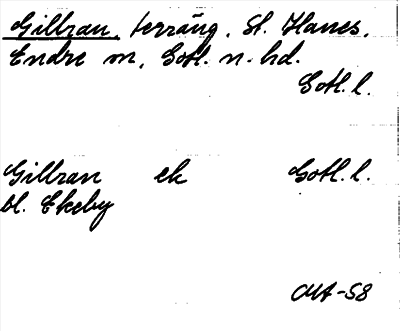 Gillran, terräng, St. Hanes,
Endre sn, Gotl. n. hd.
Gotl. l.
Gillran ek Gotl. l.
bl. Ekeby
MA-58